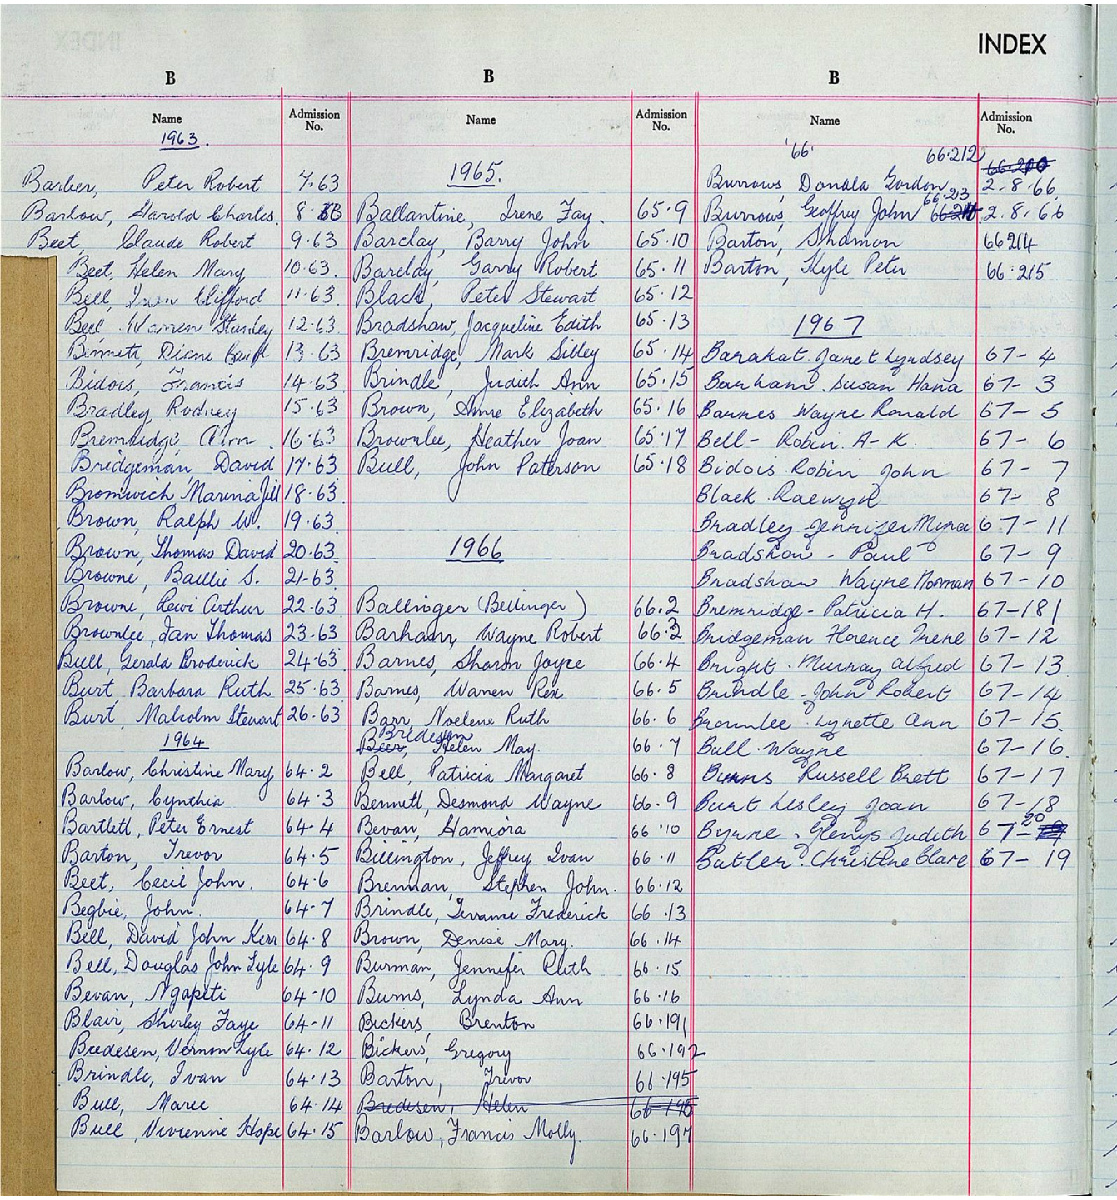 INDEX
B
Name
Admission No.
1963.
Barber, Peter Robert 7.63
Barlow, Harold Charles. 8.63
Beet, Claude Robert 9.63
Beet, Helen Mary 10.63.
Bell, Clifford 11.63
Bell Stanley 12.63
Bennett, Diane 13.63
Bidois, Francis 14.63
Bradley, Rodney 15.63
Bremridge 16.63
Bridgeman, David 17.63
Bromwich Marina Jill 18.63
Brown, Ralph W. 19.63
Brown, Thomas David 20.63
Browne, Baillie S. 21-63
Browne, Lewi Arthur 22.63
Brownlee, Ian Thomas 23.63
Bull, Gerald Broderick 24.63
Burt, Barbara Ruth 25.63
Burt, Malcolm Stewart 26.63
1964
Barlow, Christine Mary 64.2
Barlow, Cynthia 64.3
Bartlett, Peter Ernest 64.4
Barton, Trevor 64.5
Beet, Cecil John. 64.6
Begbie, John. 64-7
Bell, David John Kerr 64.8
Bell, Douglas John Lyle 64.9
Bevan, Ngapeti 64-10
Blair, Shirley Faye 64-11
Bredesen, Vernon Lyle 64.12
Brindle, Ivan 64.13
Bull, Maree 64.14
Bull, Vivienne Hope 64.15
B
Name
Admission No.
1965.
Ballantine, Irene Fay 65.9
Barclay, Barry John 65.10
Barclay, Garry Robert 65.11
Black, Peter Stewart 65.12
Bradshaw, Jacqueline Edith 65.13
Bremridge, Mark Sibley 65.14
Brindle, Judith Ann 65.15
Brown, Anne Elizabeth 65.16
Brownlee, Heather Joan 65.17
Bull, John Paterson 65.18
1966
Ballinger (Bellinger) 66.2
Barham, Wayne Robert 66.3
Barnes, Sharon Joyce 66.4
Barnes, Warren Rex 66.5
Barr, Noelene Ruth 66.6
Bredesen
Helen May. 66.7
Bell, Patricia Margaret 66.8
Bennett, Desmond Wayne 66.9
Bevan, Hamiora 66.10
Billington, Jeffrey Ivan 66.11
Brennan, Stephen John. 66.12
Brindle, Frederick 66.13
Brown, Denise Mary. 66.14
Burman, Jennifer Ruth 66.15
Burns, Lynda Ann 66.16
Bickers, Brenton 66.191
Bickers, Gregory 66.192
Barton, Trevor 66.195
Bredesen, Helen
Barlow, Francis Molly. 66.197
B
Name
Admission No.
'66.
66.212
Burrows Donald Gordon 2.8.66.
66.213
Burrows, Geoffrey John 2.8.66
Barton, Shannon 66214
Barton, Kyle Peter 66.215
1967
Barakat. Janet Lyndsey 67-4
Barham. Susan Hana 67-3
Barnes Wayne Ronald 67-5
Bell- Robin. A-K. 67-6
Bidois Robin John 67-7
Black. Raewyn 67-8
Bradley Jennifer Myra 67-11
Bradshaw - Paul 67-9
Bradshaw Wayne Norman 67-10
Bremridge- Patricia H. 67-181
Bridgeman Florence Irene 67-12
Bright. Murray Alfred 67-13
Brindle - John Robert 67-14
Brownlee Lynette Ann 67-15
Bull. Wayne 67-16
Burns Russell Brett 67-17
Burt Lesley Joan 67-18
Byrne. Glenys Judith 67-20
Butler. Christine Clare 67-19